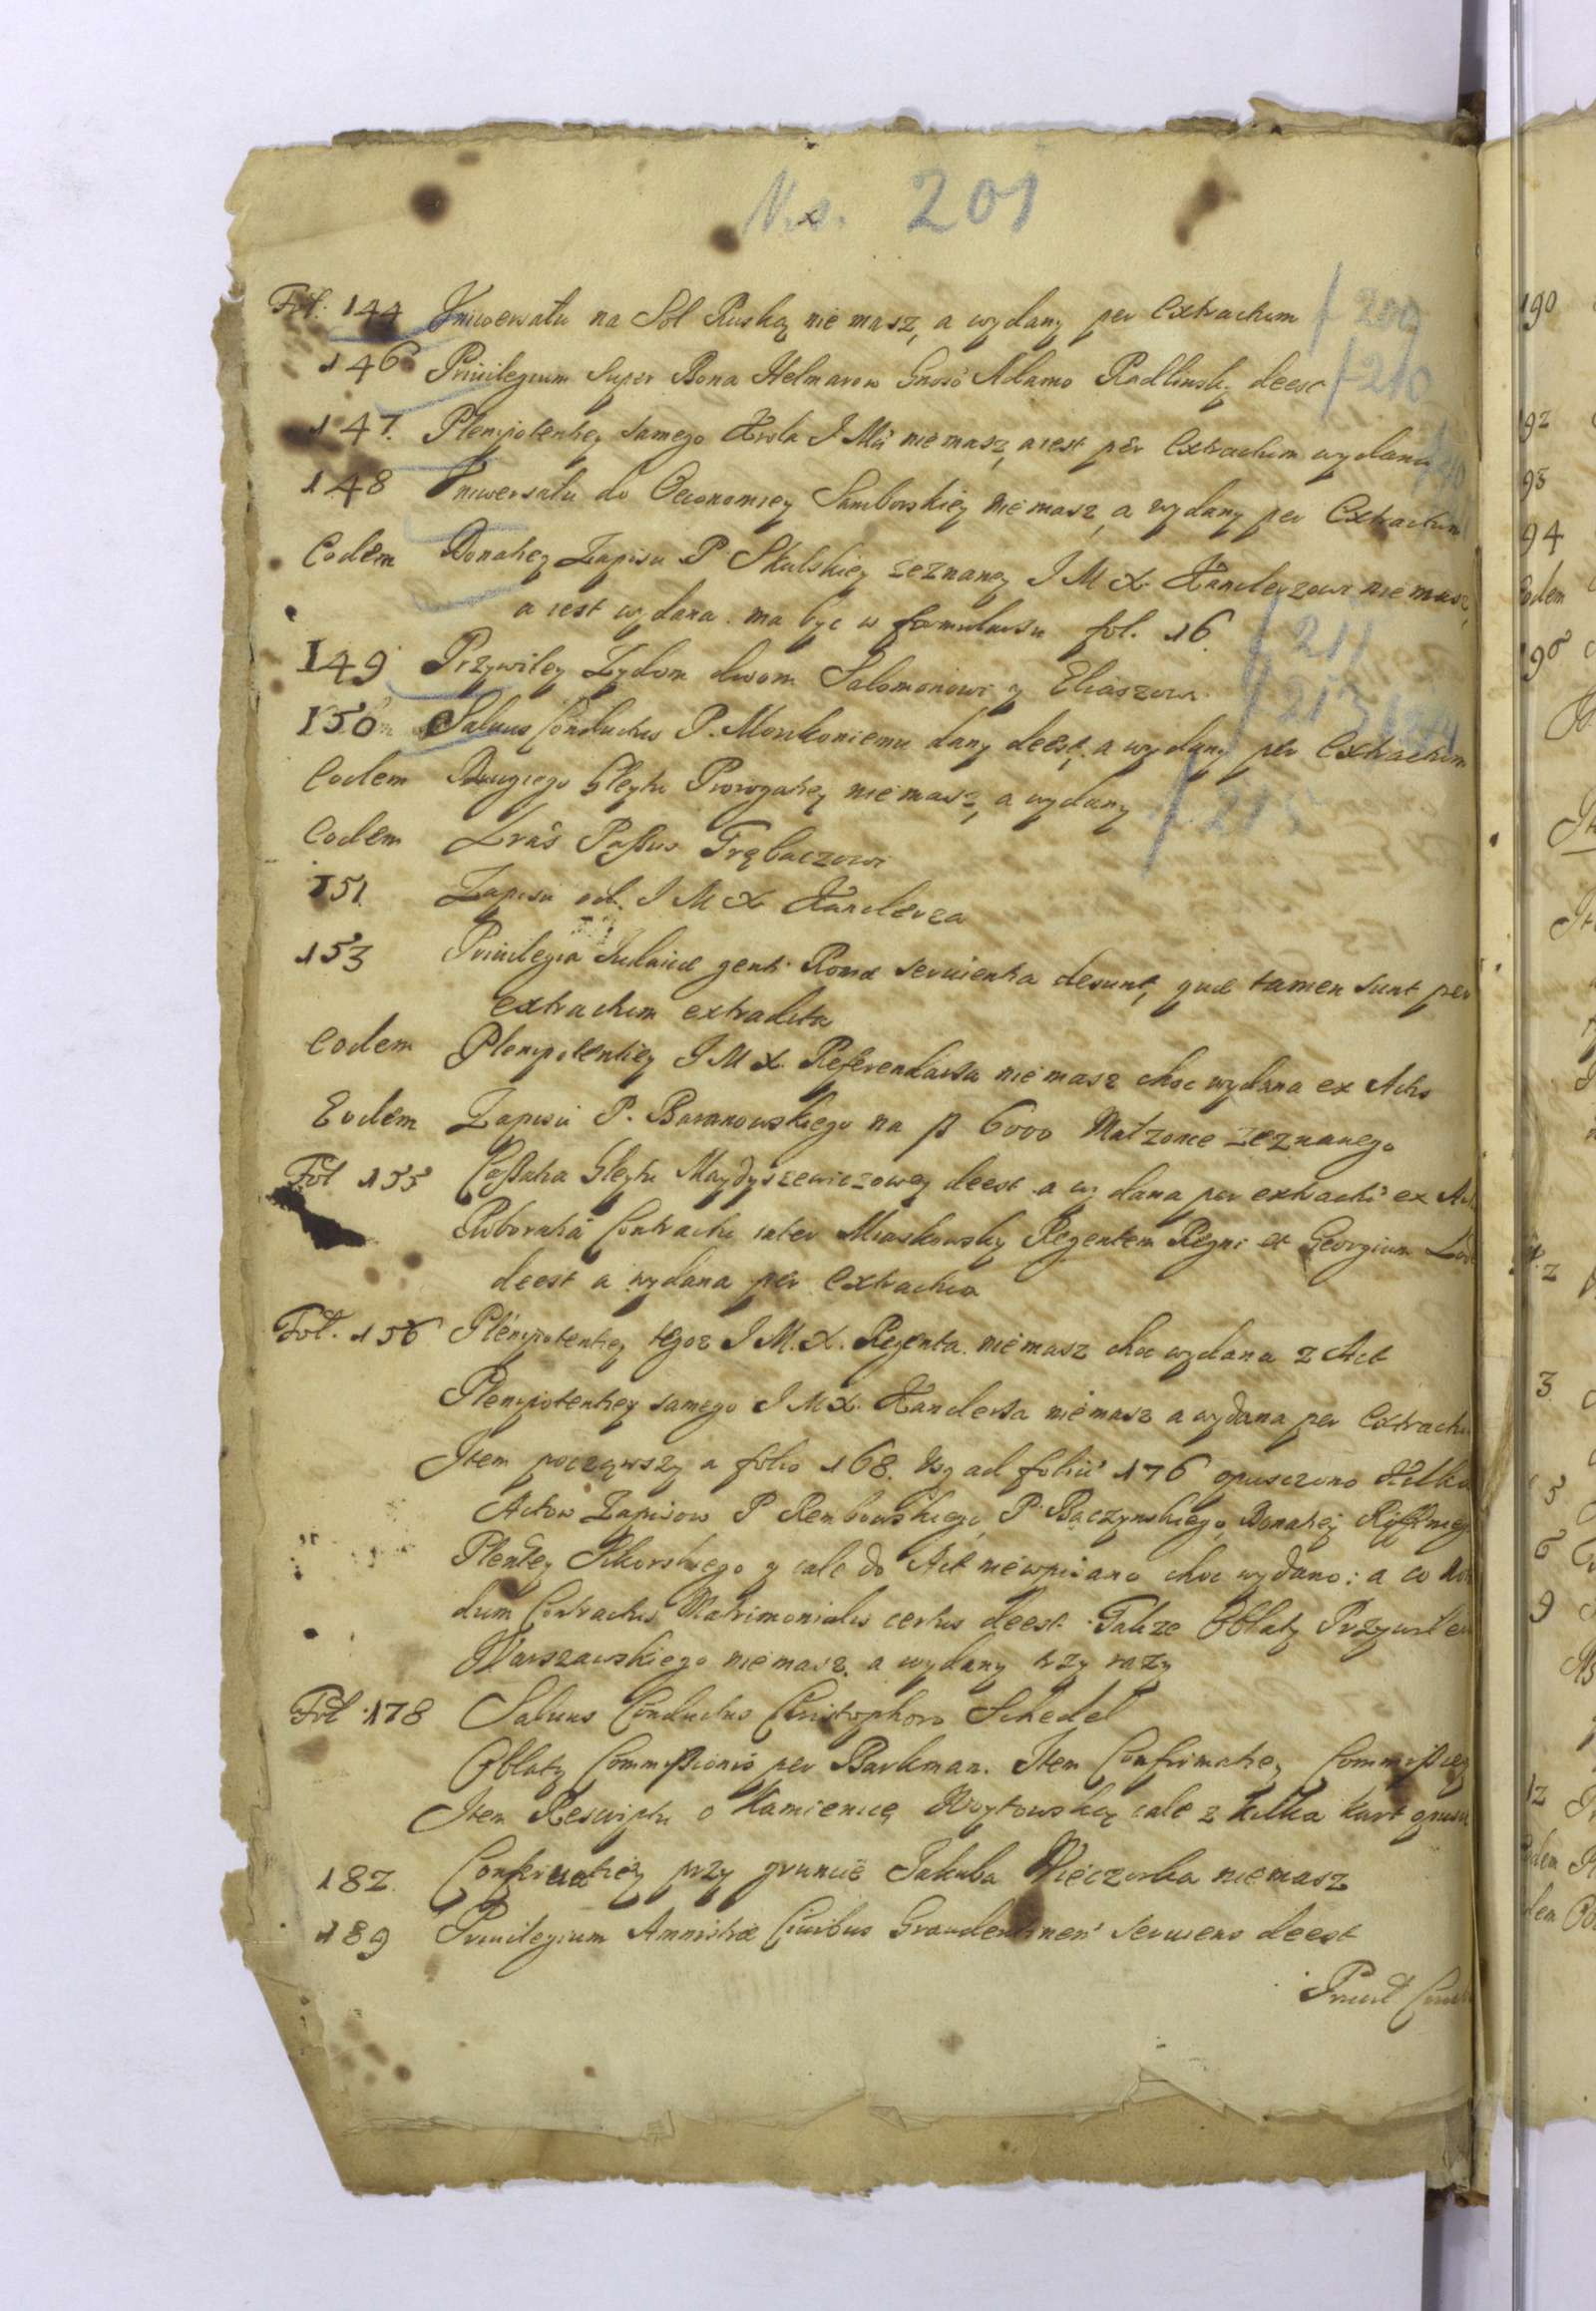 Ns. 201
Fol. 144 Vniwersału na Sol Ruską nie masz, a wydany per Extractum
f 209
146 Priuilegium super Bona Helmarow Gnoso Adamo Radlinsky deest
f 210
147. Plenipotentiey samego Krola I Mci nie masz, a iest per Extractum wydana
148 Vniwersału do Oeconomiey Samborskiey nie masz, a wydany per Extractum
Eodem Donatiey Zapisu P. Skulskiey zeznaney I M X. Kanclerzowi nie masz,
a iest wydana. ma byc w formularzu fol. 16.
f 211
149 Przywiley Zydom dwom Salomonowi y Eliaszowi
f 213
150 Saluus Conductus P. dany deest, a wydany per Extractum
Eodem Drugiego Gleytu Prorogatiey nie masz, a wydany
f 215
Eodem Lrás Passus Trębaczowi
151. Zapisu od I M X Kanclerza
153 Priuilegia Iudaicæ genti Romæ seruientia desunt, quæ tamen sunt per
extractum extradita
Eodem Plenipotentiey I M X. Referendarza nie masz choc wydana ex Actis
Eodem Zapisu P. Baranowskiego na fl 6000 Małzonce zeznanego
Fol 155 Cassatia Gleytu Maydyszewiczowey deest a wydana per extractu ex
Roboratia Contractu inter Miaskowsky Regentem Regni et Georgium
deest a wydana per Extractum
Fol. 156 Plenipotentiey tegoz I M. X. Regenta nie masz choc wydana z Act
Plenipotentiey samego I M X. Kanclerza nie masz a wydana per
Item począwszy a folio 168. usq ad foliu 176 opusczono Kilka
Actow Zapisow P Rembowskiego, P. Bączynskiego, Donatiey
Plentey Sikorskiego y cale do Act niewpisano choc wydano: a co
dum Contractus Matrimonialis certus deest. Takze Oblaty
Warszawskiego nie masz. a wydany trzy razy
Fol 178 Saluus Conductus Christophoro Schedel
Oblaty Commissionis per Barkman. Item Confirmatiey Commissiey
Item Rescriptu o Kamienicę cale z kilka kart
182. przy gruncie Jakuba Wieczorka nie masz
189 Priuilegium Amnistiæ Ciuibus Graudentinen seruiens deest
Priuil
190
92
93
94
Eodem
195
3
5
6
9
12